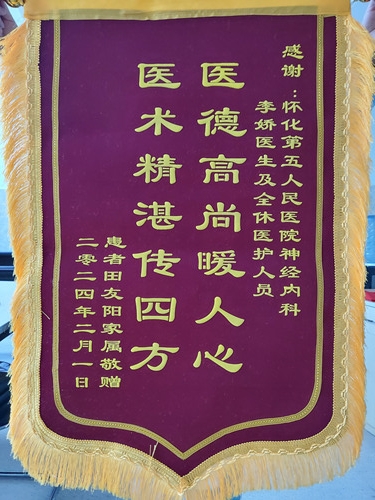 感谢：怀化第五人民医院神经内科
李娇医生及全休医护人员
医德高尚暖人心
医术精湛传四方
患者田友阳家属敬赠
二零二四年二月一日